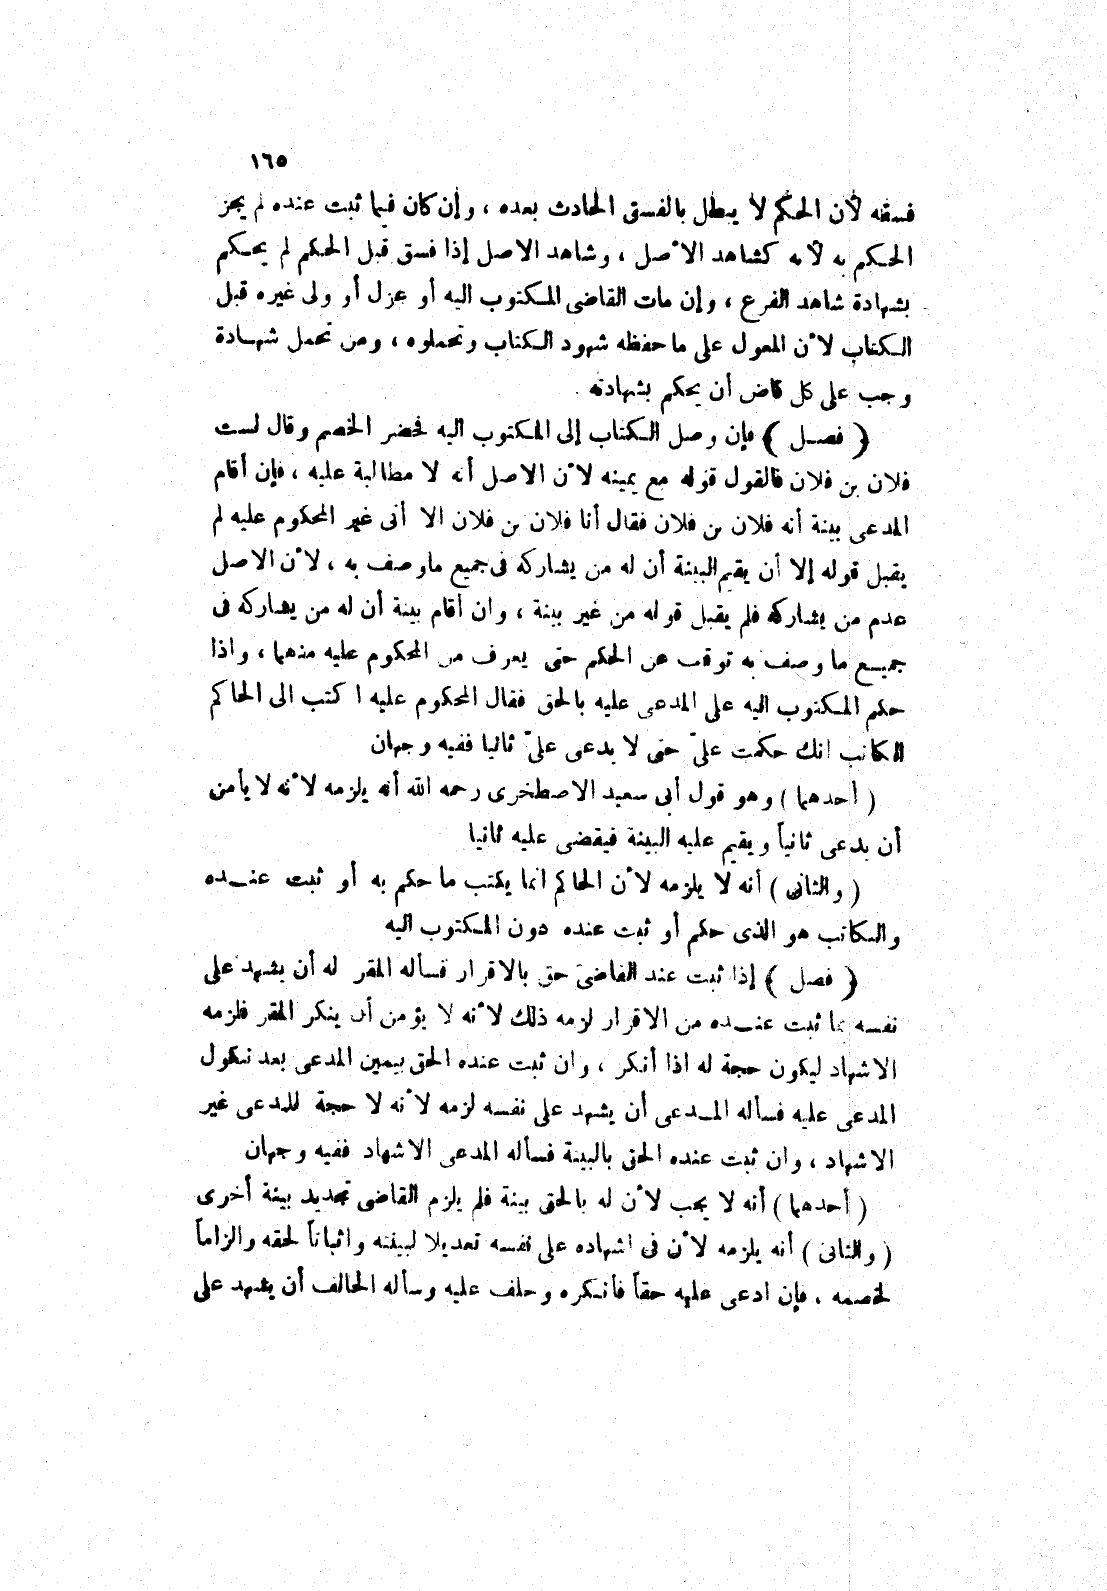 ١٦٥
فسقه لأن الحكم لا يبطل بالفسق الحادث بعده ، وإن كان فيما ثبت عنده لم يجز
الحكم به لأنه كشاهد الأصل ، وشاهد الاصل إذا فسق قبل الحكم لم يحكم
بشهادة شاهد الفرع ، وإن مات القاضى المكتوب اليه أو عزل أو ولى غيره قبل
الكتاب لأن المعول على ما حفظه شهود الكتاب وتحملوه ، ومن تحمل شهادة
وجب على كل قاض أن يحكم بشهادته .
( فصل ) فإن وصل الكتاب إلى المكتوب اليه فحضر الخصم وقال لست
فلان بن فلان فالقول قوله مع يمينه لأن الاصل أنه لا مطالبة عليه ، فإن أقام
المدعى بينة أنه فلان بن فلان فقال أنا فلان بن فلان الا أنى غير المحكوم عليه لم
يقبل قوله إلا أن يقيم البينة أن له من يشاركه فى جميع ما وصف به ، لأن الاصل
عدم من يشاركه فلم يقبل قوله من غير بينة ، وان أقام بينة أن له من يشاركه فى
جميع ما وصف به توقف عن الحكم حتى يعرف من المحكوم عليه منهما ، واذا
حكم المكتوب اليه على المدعى عليه بالحق فقال المحكوم عليه اكتب الى الحاكم
الكاتب انك حكمت علىّ حتى لا يدعى علىّ ثانيا ففيه وجهان
( أحدهما ) وهو قول أبى سعيد الاصطخرى رحمه الله أنه يلزمه لأنه لا يأمن
أن يدعى ثانياً ويقيم عليه البينة فيقضى عليه ثانيا
( والثانى ) أنه لا يلزمه لأن الحاكم انما يكتب ما حكم به أو ثبت عنده
والكاتب هو الذى حكم أو ثبت عنده دون المكتوب اليه
( فصل ) إذا ثبت عند القاضى حق بالاقرار فسأله المقر له أن يشهد على
نفسه بما ثبت عنده من الاقرار لزمه ذلك لأنه لا يؤمن أن ينكر المقر فلزمه
الاشهاد ليكون حجة له اذا أنكر ، وان ثبت عنده الحق بيمين المدعى بعد نكول
المدعى عليه فسأله المدعى أن يشهد على نفسه لزمه لأنه لا حجة للمدعى غير
الاشهاد ، وان ثبت عنده الحق بالبينة فسأله المدعى الاشهاد ففيه وجهان
( أحدهما ) أنه لا يجب لأن له بالحق بينة فلم يلزم القاضى تجديد بينة أخرى
( والثانى ) أنه يلزمه لأن فى اشهاده على نفسه تعديلا لبينته واثباتاً لحقه والزاماً
لخصمه . فإن ادعى عليه حقاً فأنكره وحلف عليه وسأله الحالف أن يشهد على